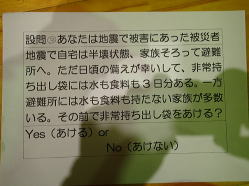 設問③あなたは地震で被害にあった被災者
地震で自宅は半壊状態、家族そろって避難
所へ。ただ日頃の備えが幸いして、非常持
ち出し袋には水も食料も3日分ある。一方
避難所には水も食料も持たない家族が多数
いる。その前で非常持ち出し袋をあける？
Yes（あける）or
No（あけない）